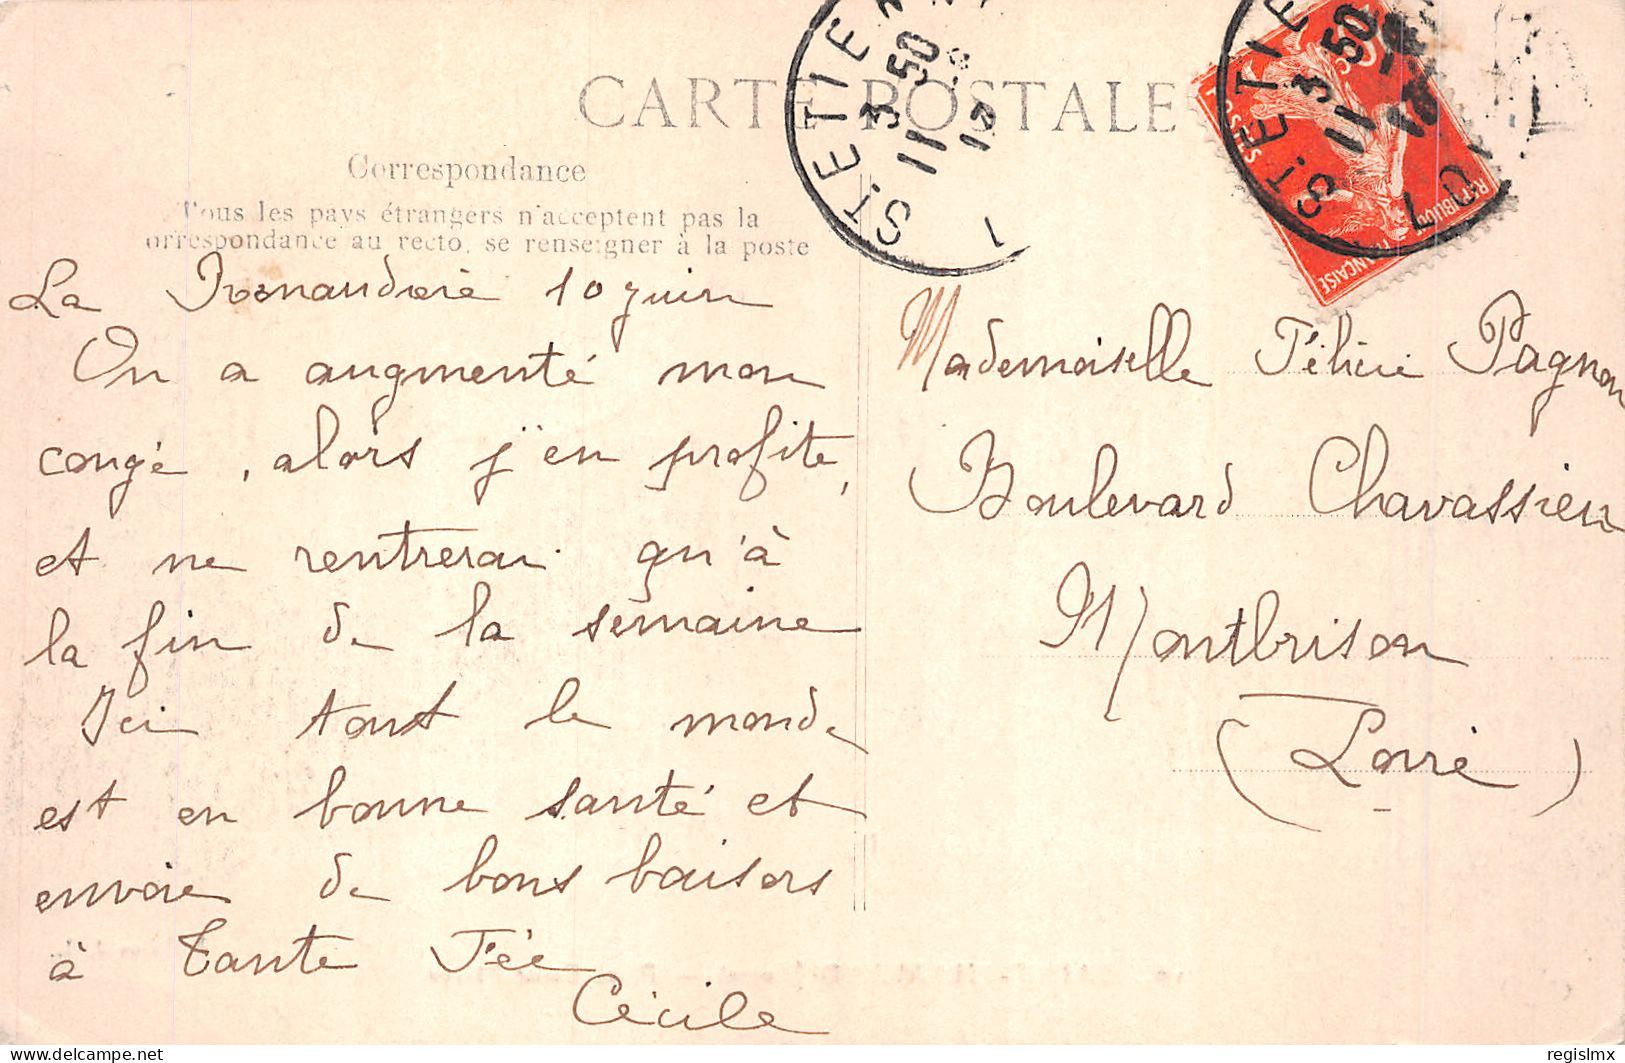 CARTE POSTALE
Correspondance
Tous les pays étrangers n'acceptent pas la
orrespondance au recto, se renseigner à la poste
La 10 juin
On a augmenté mon
congé, alors j'en profite,
et ne rentrerai qu'à
la fin de la semaine
Ici tout le monde
est en bonne santé et
envoie de bons baisers
à Tante Fée
Cécile
ST. ETIE
3 50
11
ST. ETIE
3 50
11
LO
POSTES
REPUBLIQUE FRANÇAISE
Mademoiselle Félicie Pagnon
Boulevard Chavassieu
Montbrison
(Loire)
delcampe.net
regislmx